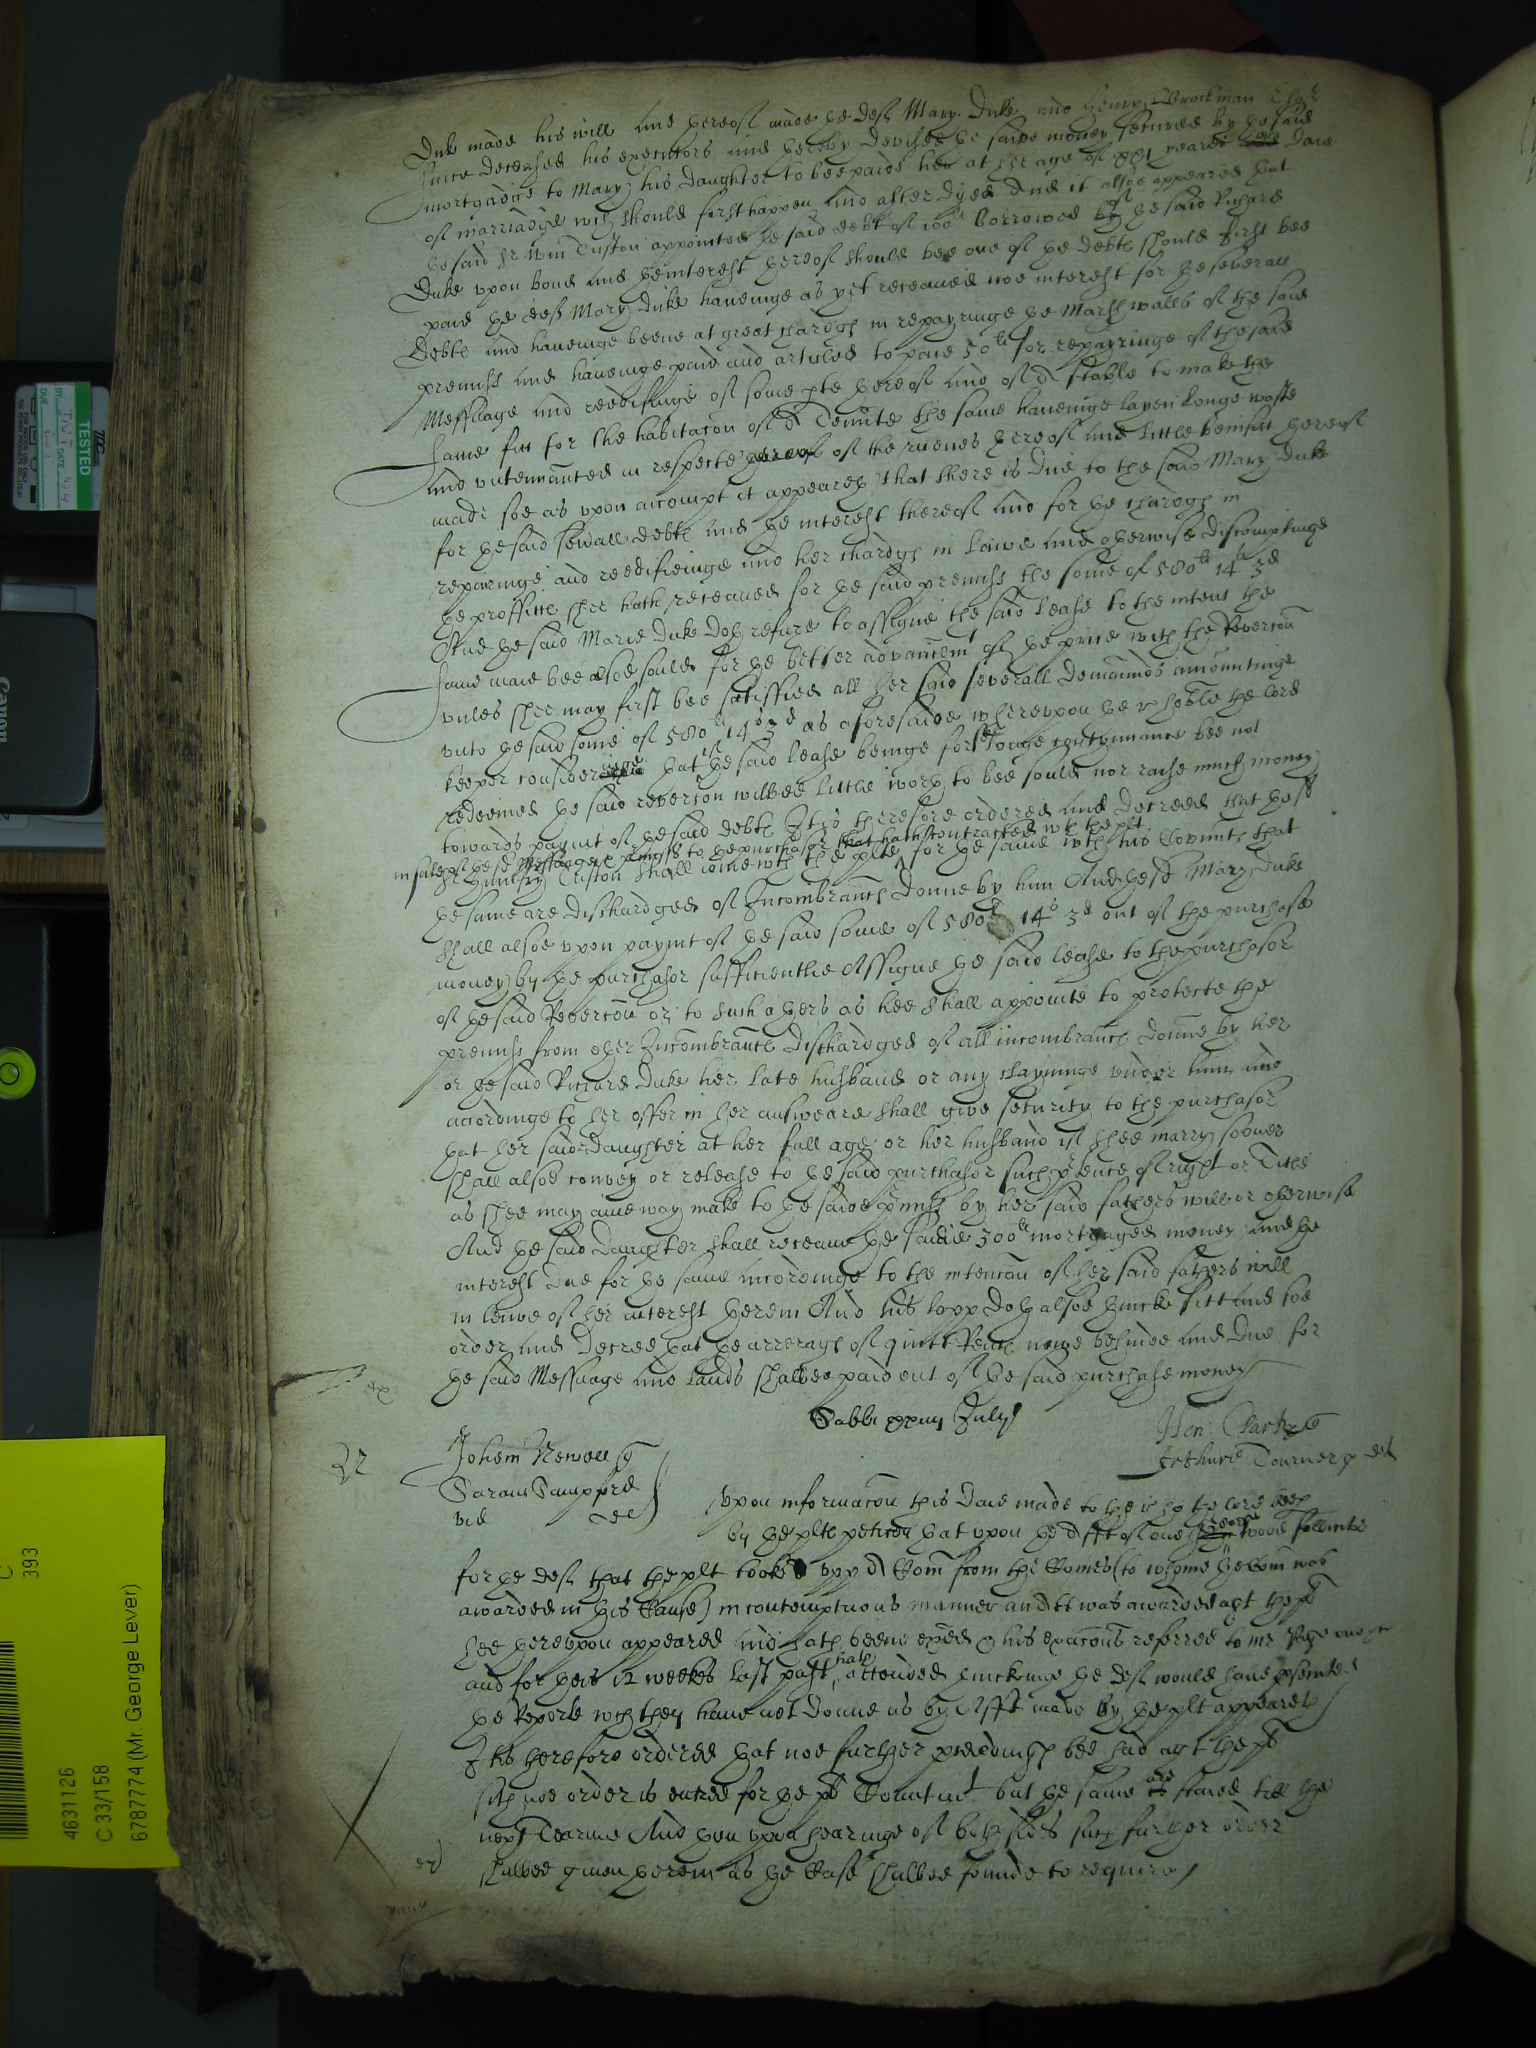 Duke made his will and thereof made the def Mary Duke and Henry Brockman Esqr
since deceased his executors and thereby devised the saide money secured by the said
mortgadge to Mary his daughter to bee paide her at her age of xxi yeares or daie
of marriadge wch should first happen and after dyed And it alsoe appeared that
the said Sr Wm Tufton appointed the said debt of 100li borrowed of the said Richard
Duke upon bond and the interest thereof should bee one of the debts should first bee
paid the def Mary Duke haueinge as yet receaued noe interest for the severall
debts and haueinge beene at great chardgs in repayringe the Marsh walls of the said
premiss and haueinge paid and articled to paie 50li for repayringe of the said
Messuage and reedifinge of some pte thereof and of a stable to make the
same fitt for the habitacon of a Tennte the same haueinge layen longe waste
and untennanted in respecte of the ruenes thereof and little benefit thereof
made soe as upon accompt it appeareth that there is due to the said Mary Duke
for the said seuall debts and the interest thereof and for the chardgs in
repairinge and reedifieinge and her chardgs in lawe and otherwise discomptinge
the proffitts shee hath receaued for the said premiss the some of 580li 14s 3d
And the said Marie Duke doth refuse to assigne the said lease to the intent the
same maie bee alsoe sould for the better advancemt of the price with the Revercon
unles shee may first bee satisfied all her said severall demaunds amountinge
unto the said some of 580li 14s 3d as aforesaide whereupon the r hoble the lord
keeper consideringe that if the said lease beinge for soe longe contynnance bee not
redeemed the said revercon wilbee little worth to bee sould nor raise much money
towards paymt of the said debts It is therefore ordered and decreed that the sd
in sale of the sd Messuage & pmisses to the purchasor that hath contracted wth the plt
Sr Humfry Tufton shall ioine wth the plts for the same with his Covennts that
the same are dischardged of Incombrancs donne by him And the sd Mary Duke
shall alsoe upon paymt of the said some of 580li 14s 3d out of the purchase
money by the purchasor sufficientlie Assigne the said lease to the purchasor
of the said Revercon or to such others as hee shall appointe to protecte the
premiss from other Incombrancs dischardged of all incombrancs donne by her
or the said Richard Duke her late husband or any clayminge under him and
accordinge to her offer in her answeare shall give security to the purchasor
that her said daughter at her full age or her husband if shee marry sooner
shall alsoe convey or release to the said purchasor such ptence of right or Title
as shee may anie way make to the saide pmiss by her said fathers will or otherwise
And the said daughter shall receaue the saide 300li mortgaged money and the
interest due for the same accordinge to the intencon of her said fathers will
in leiue of her interest therein And his lopp doth alsoe thincke fitt and soe
order and decree that the arrerags of quitt Rents nowe behinde and due for
the said Messuage and lands shalbee paid out of the said purchase money
Sabbi xxiiij July
Hen: Parker
Arthure Tourner def
Johem Newell q
Saram Samford
vid def
Upon informacon this daie made to the r ho the lord keep
by the plts peticon that upon the afft of one
for the def that the plt tooke upp a Com from the Comrs (to whome the Com was
awarded in this Cause) in contemptuous manner an att was awarded agt the pt
hee thereupon appeared and hath beene exied & his exacons referred to mr Page
and for theis 12 weekes last past hath attended thinckinge the def would have psented
the Reporte wch they haue not donne as by Afft made by the plt appeareth
It is therefore ordered that noe further proceedings bee had agt the pt
sith noe order is entred for the pts Comitmt but the same are staied till the
next Tearme And then upon hearinge of both sides such further order
shalbee giuen therein as the Case shalbee founde to require
TESTED
BY
DATE
DUE
Canon
C
393
4631126
C 33/158
6787774 (Mr. George Lever)